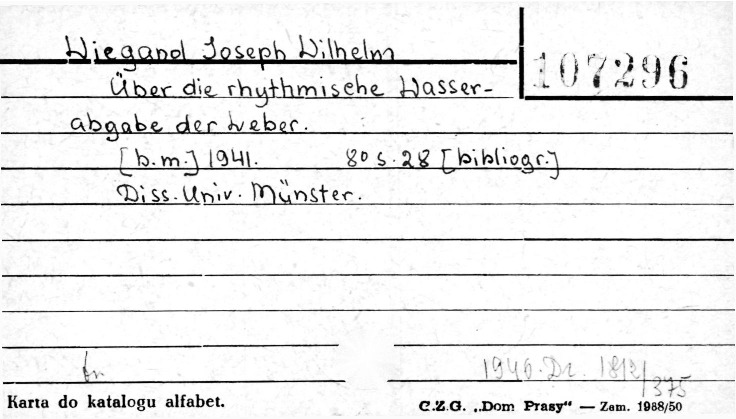 Wiegand Joseph Wilhelm
107296
Über die rhythmische Wasser-
abgabe der Leber.
[b.m.] 1941. 80 s. 28 [bibliogr.]
Diss. Univ. Münster.
1946. Dr. 1812/375
Karta do katalogu alfabet.
C.Z.G. „Dom Prasy" — Zam. 1988/50